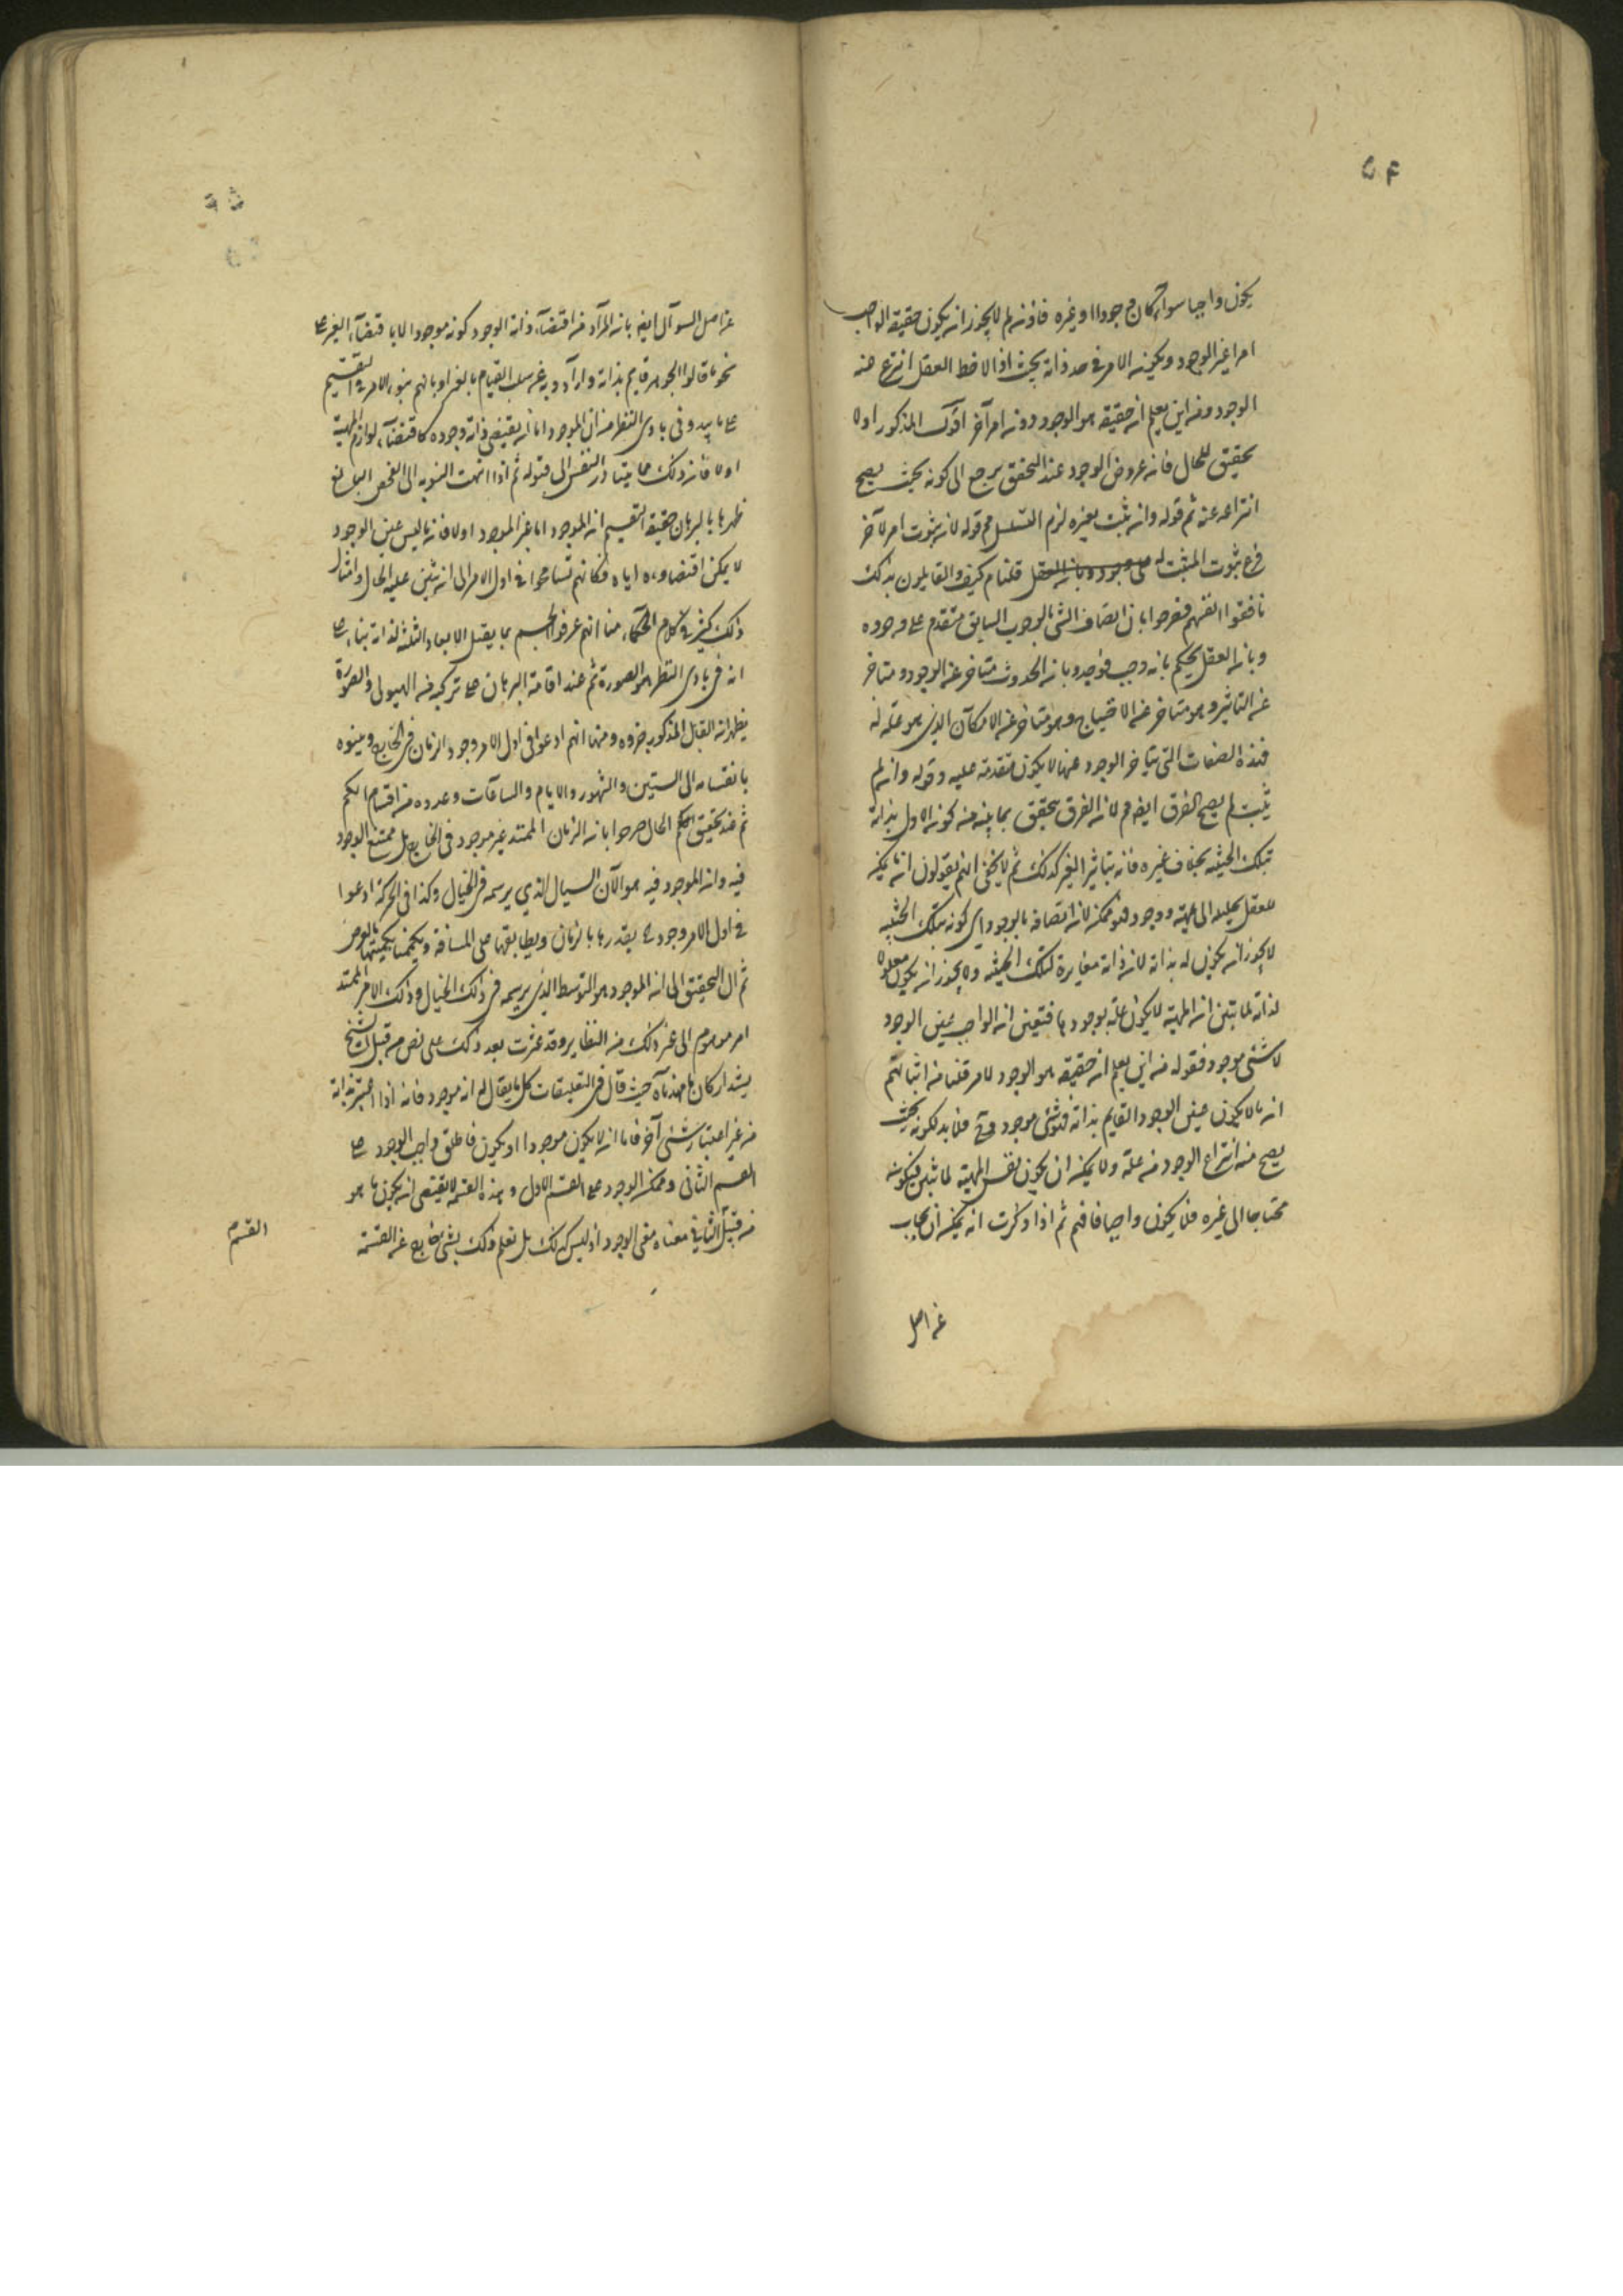 ۵۴
يكون واجبا سواء كان وجودا او غيره فاذن لم لا يجوز ان يكون حقيقة الواجب
امرا غير الوجود ويكون الامر في حد ذاته بحيث اذا لاحظ العقل انتزع منه
الوجود ومن اين يعلم ان حقيقة هو الوجود دون امر آخر اقول المذكور اولا
تحقيق للحال فان عروض الوجود عند التحقق يرجع الى كونه بحيث يصح
انتزاعه عنه ثم قوله وان ثبت بغيره لزم التسلسل مع قوله لان ثبوت امر لآخر
فرع ثبوت المثبت له قلنا م كيف والقايلون بذلك
ناقضوا انفسهم فصرحوا بان اتصاف الشئ بالوجوب السابق متقدم على وجوده
وبان العقل يحكم بانه وجب فوجد وبان الحدوث متاخر عن الوجود ومتاخر
عن التاثير وهو متاخر عن الاحتياج وهو متاخر عن الامكان الذي هو علة له
فهذه الصفات التي يتاخر الوجود عنها لا يكون متقدمة عليه وقوله وان لم
يثبت لم يصح الفرق ايضا م لان الفرق يتحقق بما بينه من كون الاول بذاته
بتلك الحيثية بخلاف غيره فانه بتاثير الغير كذلك ثم لا يخفى انهم يقولون ان ما يمكن
للعقل تحليله الى مهية ووجود فهو ممكن لان اتصافه بالوجود اي كونه بتلك الحيثية
لا يجوز ان يكون له بذاته لان ذاته مغايرة لتلك الحيثية ولا يجوز ان يكون معلولا
لذاته لما تبين ان المهية لا يكون علة لوجودها فتعين ان الواجب عين الوجود
لا شئ موجود فقوله من اين يعلم ان حقيقة هو الوجود لا امر قلنا من اثباتهم
ان ما لا يكون عين الوجود القايم بذاته فهو شئ موجود وح فلا بد لكونه بحيث
يصح منه انتزاع الوجود من علة ولا يمكن ان يكون نفس المهية لما تبين فيكون
محتاجا الى غيره فلا يكون واجبا فافهم ثم اذا ذكرت انه يمكن ان يجاب
عن اصل
۵۵
عن اصل السوآل ايضا بان المراد من اقتضاء ذاته الوجود كونه موجودا لا باقتضاء الغير على
نحو ما قالوا الجوهر قايم بذاته وارادوا به سلب القيام بالغير او بانهم بنوا الامر في التقسيم
على ما يبدو في بادى النظر من ان الموجود اما ان يقتضي ذاته وجوده كاقتضاء لوازم المهية
اولا فان ذلك مما يتبادر النفس الى قبوله ثم اذا انتهت النوبة الى الفحص البالغ
ظهر ما بالبرهان حقيقة التقسيم ان الموجود اما عين الموجود اولا فان ما ليس عين الوجود
لا يمكن اقتضاؤه اياه فكانهم تسامحوا في اول الامر الى ان تبين عليه الحال وامثال
ذلك كثير في كلام الحكماء منها انهم عرفوا الجسم بما يقبل الابعاد الثلثة لذاته بناء على
انه في بادى النظر هو الصورة ثم عند اقامة البرهان على تركبه من الهيولى والصورة
يظهر ان القابل المذكور جزوه ومنها انهم ادعوا في اول الامر وجود الزمان في الخارج وبينوه
بانقسامه الى السنين والشهور والايام والساعات وعدوه من اقسام الكم
ثم عند تحقيق الحال صرحوا بان الزمان الممتد غير موجود في الخارج بل ممتنع الوجود
فيه وان الموجود فيه هو الآن السيال الذي يرسمه في الخيال وكذا في الحركة ادعوا
في اول الامر وجود ما يقدرها بالزمان ويطابقها على المسافة
ثم آل التحقيق الى ان الموجود هو التوسط الذي يرسمه في ذلك الخيال وذلك الامر الممتد
امر موهوم الى غير ذلك من النظاير وقد عثرت بعد ذلك على نص من قبل الشيخ
يشد اركان ما مهدناه حيث قال في التعليقات كل ما يقال له انه موجود فانه اذا اعتبر بذاته
من غير اعتبار شئ آخر فاما ان لا يكون موجودا او يكون فاطلق واجب الوجود على
القسم الثاني وممكن الوجود على القسم الاول وهذه القسمة لا يقتضي ان يكون ما هو
من قبيل الثاني معناه معنى الوجود اذ ليس كذلك بل نعلم ذلك بشئ خارج عن القسمة
القسم